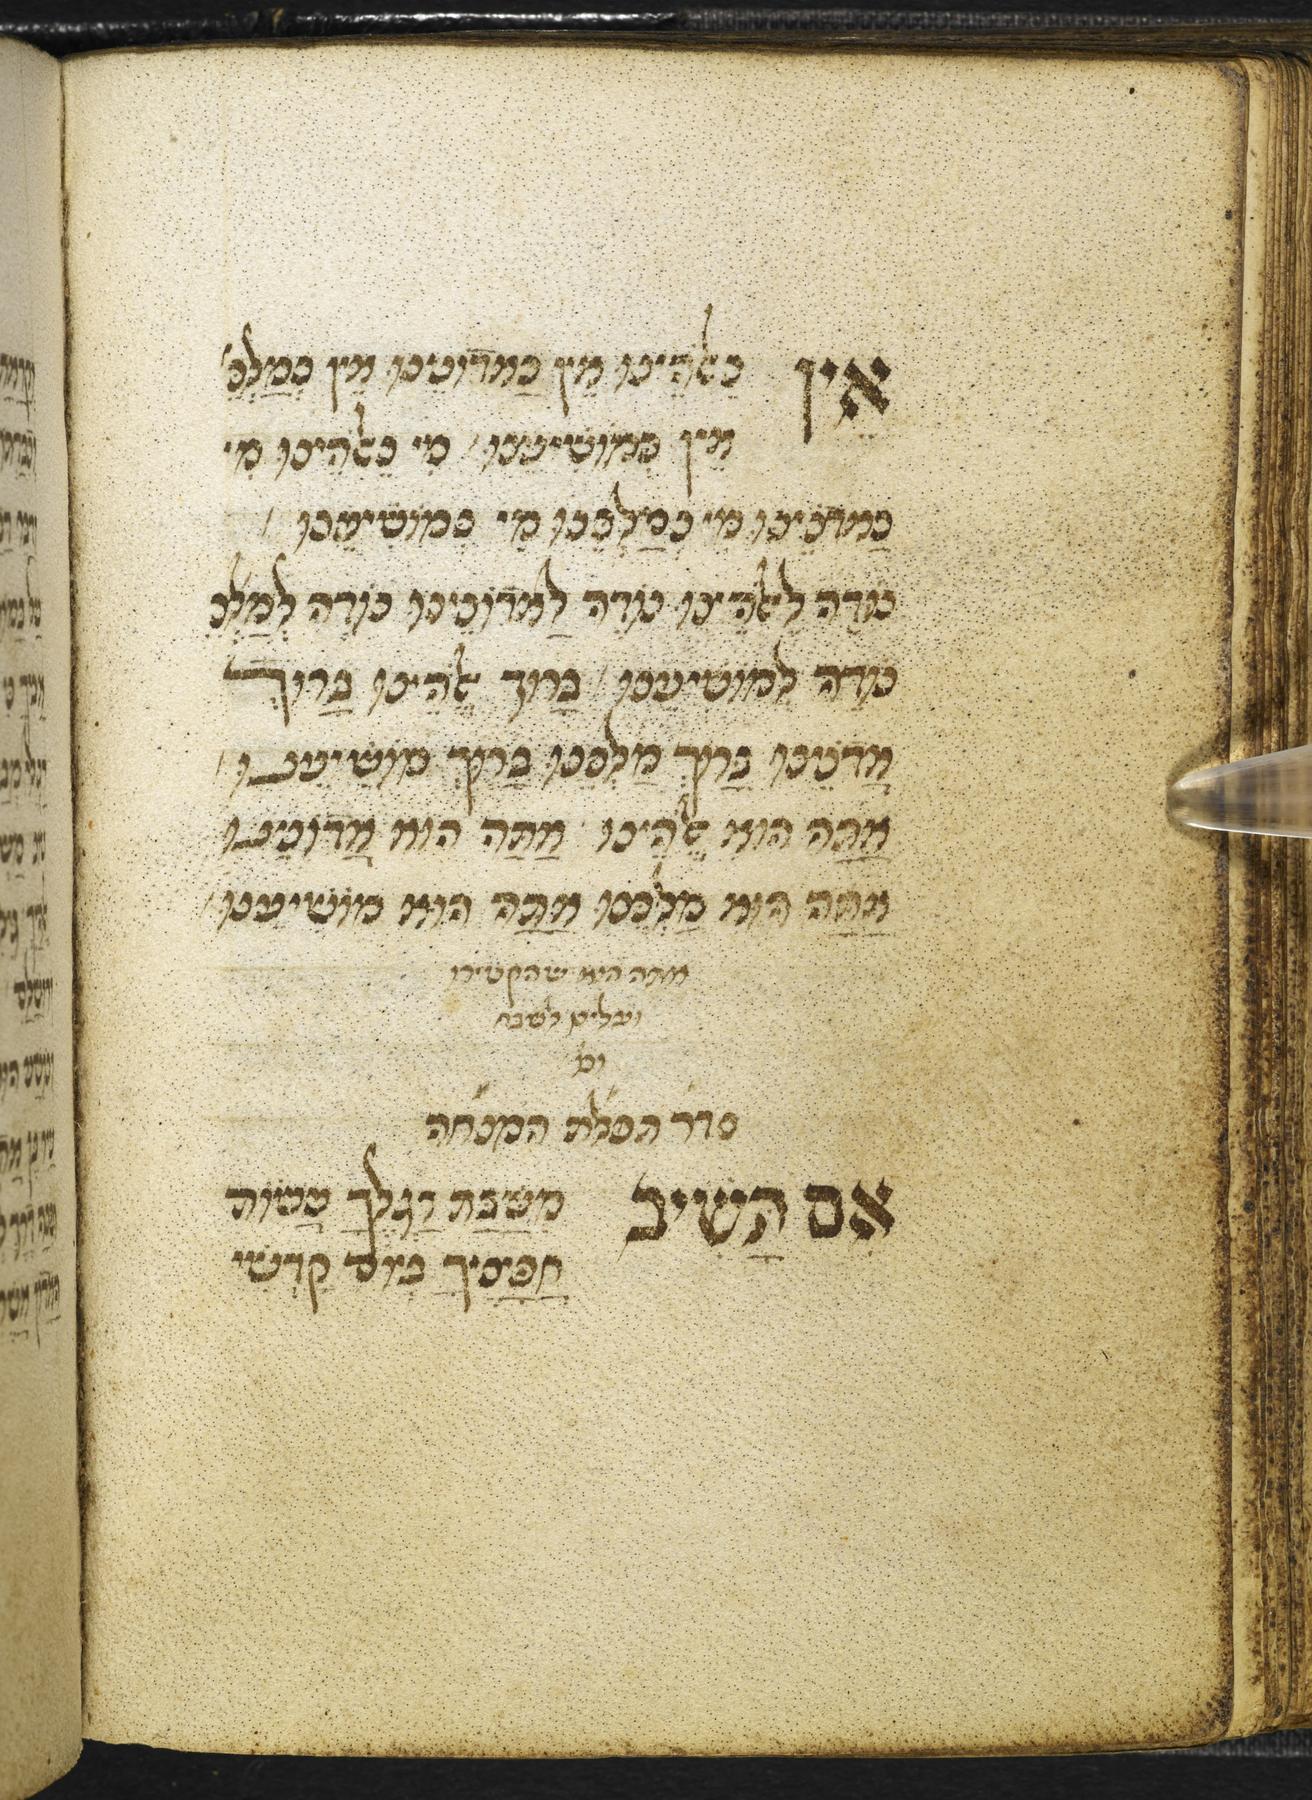 אֵין כֵּאלֹהֵינוּ אֵין כַּאדוֹנֵינוּ אֵין כְּמַלְכֵּ'
אֵין כְּמוֹשִׁיעֵנוּ / מִי כֵאלֹהֵינוּ מִי
כַאדֹנֵינוּ מִי כְמַלְכֵּנוּ מִי כְמוֹשִׁיעֵנוּ /
נוֹדֶה לֵאלֹהֵינוּ נוֹדֶה לַאדוֹנֵינוּ נוֹדֶה לְמַלְכֵּ
נוֹדֶה לְמוֹשִׁיעֵנוּ / בָּרוּךְ אֱלֹהֵינוּ בָּרוּךְ
אֲדֹנֵינוּ בָּרוּךְ מַלְכֵּנוּ בָּרוּךְ מוֹשִׁיעֵנוּ /
אַתָּה הוּא אֱלֹהֵינוּ אַתָּה הוּא אֲדוֹנֵינוּ
אַתָּה הוּא מַלְכֵּנוּ אַתָּה הוּא מוֹשִׁיעֵנוּ /
אתה הוא שהקטירו
ועלינו לשבח
וכ'
סדר תפלת המנחה
אִם תָּשִׁיב מִשַּׁבָּת רַגְלֶךָ עֲשׂוֹת
חֲפָצֶיךָ בְּיוֹם קָדְשִׁי